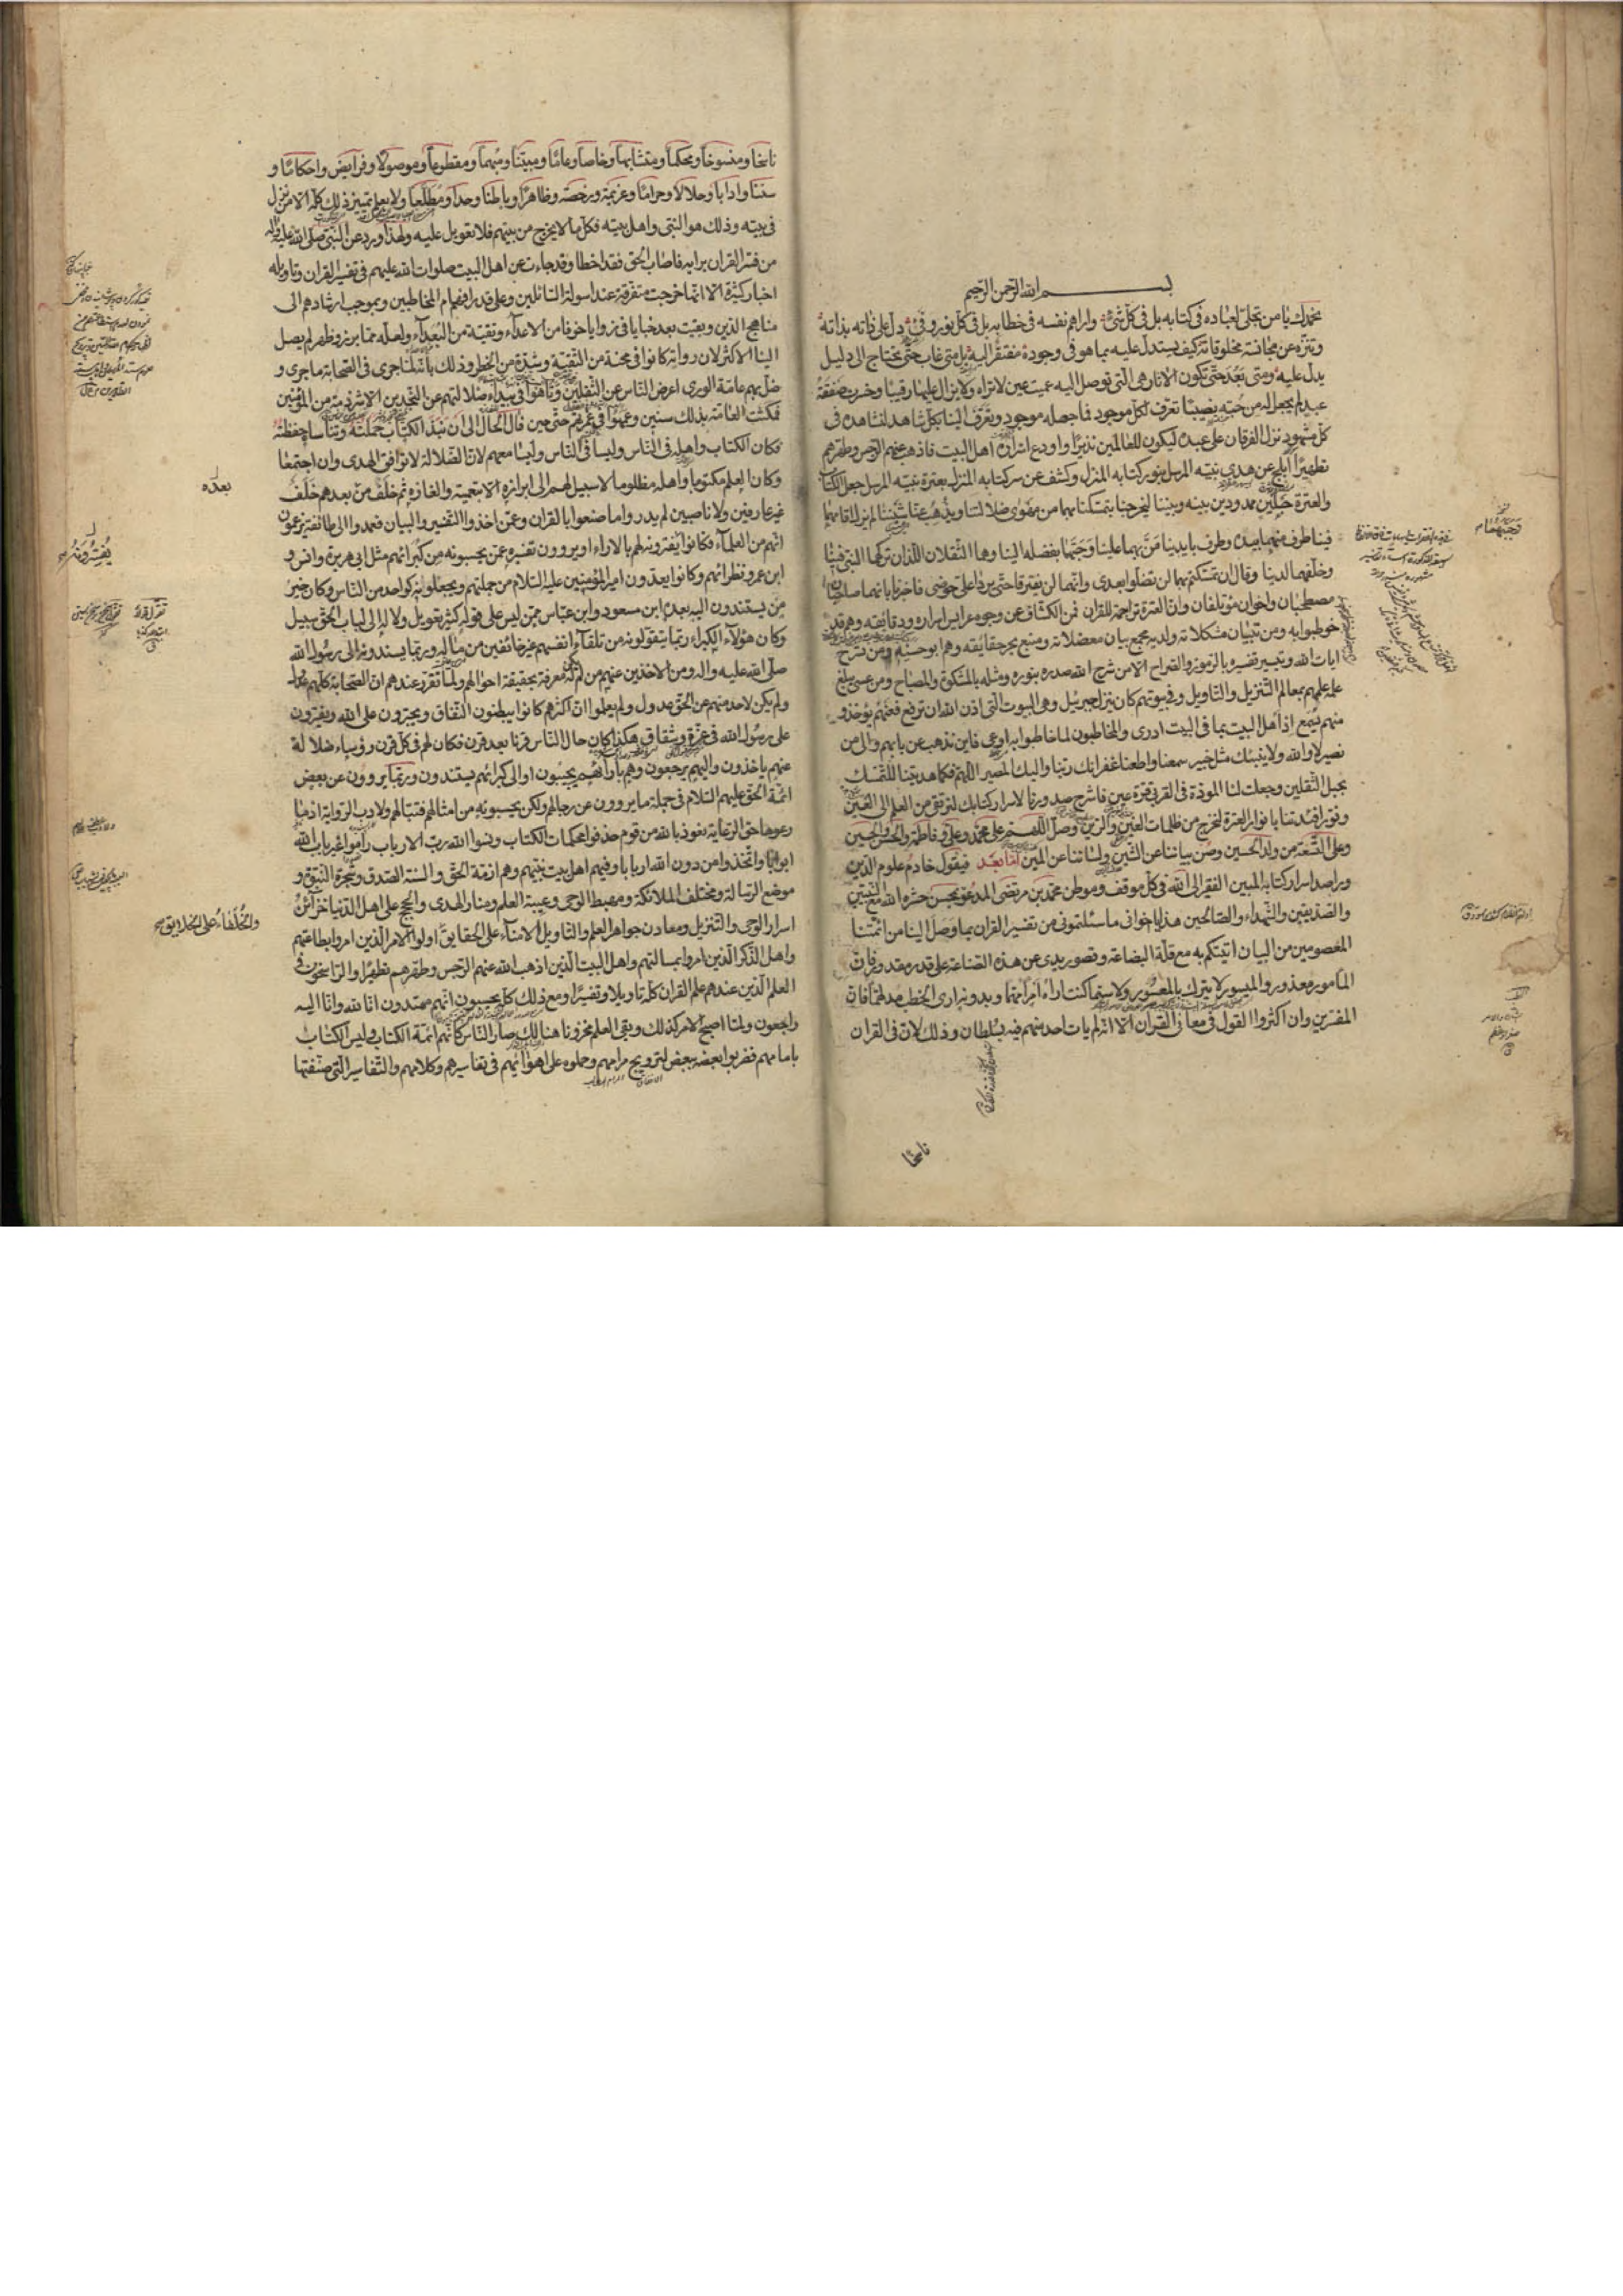 بسم الله الرحمن الرحيم
نحمدك يا من تجلى لعباده في كتابه بل في كل شيء واراهم نفسه في خطابه بل في كل نور وفيء دل على ذاته بذاته
وتنزه عن مجانسة مخلوقاته كيف يستدل عليه بما هو في وجوده مفتقر اليه بل متى غاب حتى يحتاج الى دليل
يدل عليه ومتى بعد حتى تكون الاثار هي التي توصل اليه عميت عين لا تراه ولا يزال عليها رقيبا وخسرت صفقة
عبد لم يجعل له من حبه نصيبا تعرف لكل موجود فما جهله موجود وتعرف الينا بكل شاهد لنشاهده في
كل مشهود نزل الفرقان على عبده ليكون للعالمين نذيرا واودع اسراره اهل البيت فاذهب عنهم الرجس وطهرهم
تطهيرا ابلج عن هدى نبيه المرسل بنور كتابه المنزل وكشف عن سر كتابه المنزل بعترة نبيه المرسل جعل الكتاب
والعترة حبلين ممدودين بينه وبيننا ليخرجنا بتمسكنا بهما من مهوى ضلالتنا ويذهب عنا شيننا لم يزل اقامهما
فينا طرف منهما بيده وطرف بايدينا من بهما علينا وحببهما بفضله الينا وهما الثقلان اللذان تركهما النبي فينا
وخلفهما لدينا وقال ان تمسكتم بهما لن تضلوا بعدي وانهما لن يفترقا حتى يردا على حوضي فاخبرنا بانهما صاحبان
مصطحبان واخوان مؤتلفان وان العترة تراجمة للقران فمن الكشاف عن وجوه عرايس اسراره ودقائقه وهم قد
خوطبوا به ومن لتبيان مشكلاته ولديهم مجمع بيان معضلاته ومنبع بحر حقائقه وهم ابو حسنه ومن شرح
ايات الله وتيسير تفسيره بالرموز والصراح الا من شرح الله صدره بنوره ومثله بالمشكوة والمصباح ومن عسى يبلغ
علمه علمهم بمعالم التنزيل والتاويل وفي بيوتهم كان ينزل جبرئيل وهي البيوت التي اذن الله ان ترفع فعنهم يؤخذ و
منهم يسمع اذ اهل البيت بما في البيت ادرى والمخاطبون لما خوطبوا به اوعى فاين نذهب عن بابهم والى من
نصير لا والله ولا ينبئك مثل خبير سمعنا واطعنا غفرانك ربنا واليك المصير اللهم فكما هديتنا للتمسك
بحبل الثقلين وجعلت لنا المودة في القربى قرة عين فاشرح صدورنا لاسرار كتابك لنرتقي من العلم الى العين
ونور افئدتنا بانوار العترة لنخرج من ظلمات الغين والرين وصل اللهم على محمد وعلي وفاطمة والحسن والحسين
وعلى التسعة من ولد الحسين وصن بياننا عن الشين ولساننا عن المين اما بعد فيقول خادم علوم الدين
وراصد اسرار كتابه المبين الفقير الى الله في كل موقف وموطن محمد بن مرتضى المدعو بمحسن حشره الله مع النبيين
والصديقين والشهداء والصالحين هذا يا اخواني ما سئلتموني من تفسير القران بما وصل الينا من ائمتنا
المعصومين من البيان اتيتكم به مع قلة البضاعة وقصور يدي عن هذه الصناعة على قدر مقدور فان
المأمور معذور والميسور لا يترك بالمعسور ولا سيما كنت اراه امرا مهما وبدونه ارى الخطب مدلهما فان
المفسرين وان اكثروا القول في معاني القران الا انه لم يات احد منهم فيه بسلطان وذلك لان في القران
ناسخا
ناسخا ومنسوخا ومحكما ومتشابها وخاصا وعاما ومبينا ومبهما ومقطوعا وموصولا وفرايض واحكاما و
سننا وادابا وحلالا وحراما وعزيمة ورخصة وظاهرا وباطنا وحدا ومطلعا ولا يعلم تمييز ذلك كله الا من نزل
في بيته وذلك هو النبي واهل بيته فكل ما لا يخرج من بيتهم فلا تعويل عليه ولهذا ورد عن النبي صلى الله عليه واله
من فسر القران برايه فاصاب الحق فقد اخطا وقد جاءت عن اهل البيت صلوات الله عليهم في تفسير القران وتاويله
اخبار كثيرة الا انها خرجت متفرقة عند اسولة السائلين وعلى قدر افهام المخاطبين وبموجب ارشادهم الى
مناهج الدين وبقيت بعد خبايا في زوايا خوفا من الاعداء وتقية من البعداء ولعله مما برز وظهر لم يصل
الينا الاكثر لان رواته كانوا في محنة من التقية وشدة من الخطر وذلك بانه لما جرى في الصحابة ما جرى و
ضل بهم عامة الورى اعرض الناس عن الثقلين وتاهوا في بيداء ضلالتهم عن النجدين الا شرذمة من المؤمنين
فمكث العامة بذلك سنين وعمهوا في غمرتهم حتى حين فآل الحال الى ان نبذ الكتاب حملته وتناساه حفظته
فكان الكتاب واهله في الناس وليسا في الناس وليسا معهم لان الضلالة لا توافق الهدى وان اجتمعا
وكان العلم مكتوما واهله مظلوما لا سبيل لهم الى ابرازه الا بتعميته والغازه ثم خلف من بعدهم خلف
غير عارفين ولا ناصبين لم يدروا ما صنعوا بالقران وعمن اخذوا التفسير والبيان فعمدوا الى طائفة يزعمون
انهم من العلماء فكانوا يفسرونه لهم بالاراء او يروون تفسيره عمن يحسبونه من كبرائهم مثل ابي هريرة وانس و
ابن عمر ونظرائهم وكانوا يعدون امير المؤمنين عليه السلام من جملتهم ويجعلونه كواحد من الناس وكان خير
من يستندون اليه بعده ابن مسعود وابن عباس ممن ليس على قوله كثير تعويل ولا له الى لباب الحق سبيل
وكان هؤلاء الكبراء ربما يتقولونه من تلقاء انفسهم غير خائفين من مآله وربما يسندونه الى رسول الله
صلى الله عليه واله ومن الاخذين عنهم من لم يكن له معرفة بحقيقة احوالهم ولما تقرر عندهم ان الصحابة كلهم عدول
ولم يكن لاحد منهم عن الحق عدول ولم يعلموا ان اكثرهم كانوا يبطنون النفاق ويجترون على الله ويفترون
على رسول الله في عزة وشقاق هكذا كان حال الناس قرنا بعد قرن فكان لهم في كل قرن رؤساء ضلالة
عنهم ياخذون واليهم يرجعون وهم بآرائهم يجيبون او الى كبرائهم يستندون وربما يروون عن بعض
ائمة الحق عليهم السلام في جملة ما يروون عن رجالهم ولكن يحسبونه من امثالهم فتبا لهم ولادب الرواية اذ ما
رعوها حق الرعاية نعوذ بالله من قوم حذفوا محكمات الكتاب ونسوا الله رب الارباب راموا غير باب الله
ابوابا واتخذوا من دون الله اربابا وفيهم اهل بيت نبيهم وهم ازمة الحق والسنة الصدق وشجرة النبوة و
موضع الرسالة ومختلف الملائكة ومهبط الوحي وعيبة العلم ومنار الهدى والحجج على اهل الدنيا خزائن
اسرار الوحي والتنزيل ومعادن جواهر العلم والتاويل الامناء على الحقايق اولوا الامر الذين امروا بطاعتهم
والخلفاء على الخلايق
واهل الذكر الذين امروا بمسالتهم واهل البيت الذين اذهب الله عنهم الرجس وطهرهم تطهيرا والراسخون في
العلم الذين عندهم علم القران كله تاويلا وتفسيرا ومع ذلك كله يحسبون انهم مهتدون انا لله وانا اليه
راجعون ولما اصبح الامر كذلك وبقي العلم مخزونا هنالك صار الناس كانهم ائمة الكتاب وليس الكتاب
بامامهم فضربوا بعضه ببعض لترويج مرامهم وحملوه على اهوائهم في تفاسيرهم وكلامهم والتفاسير التي صنفتها